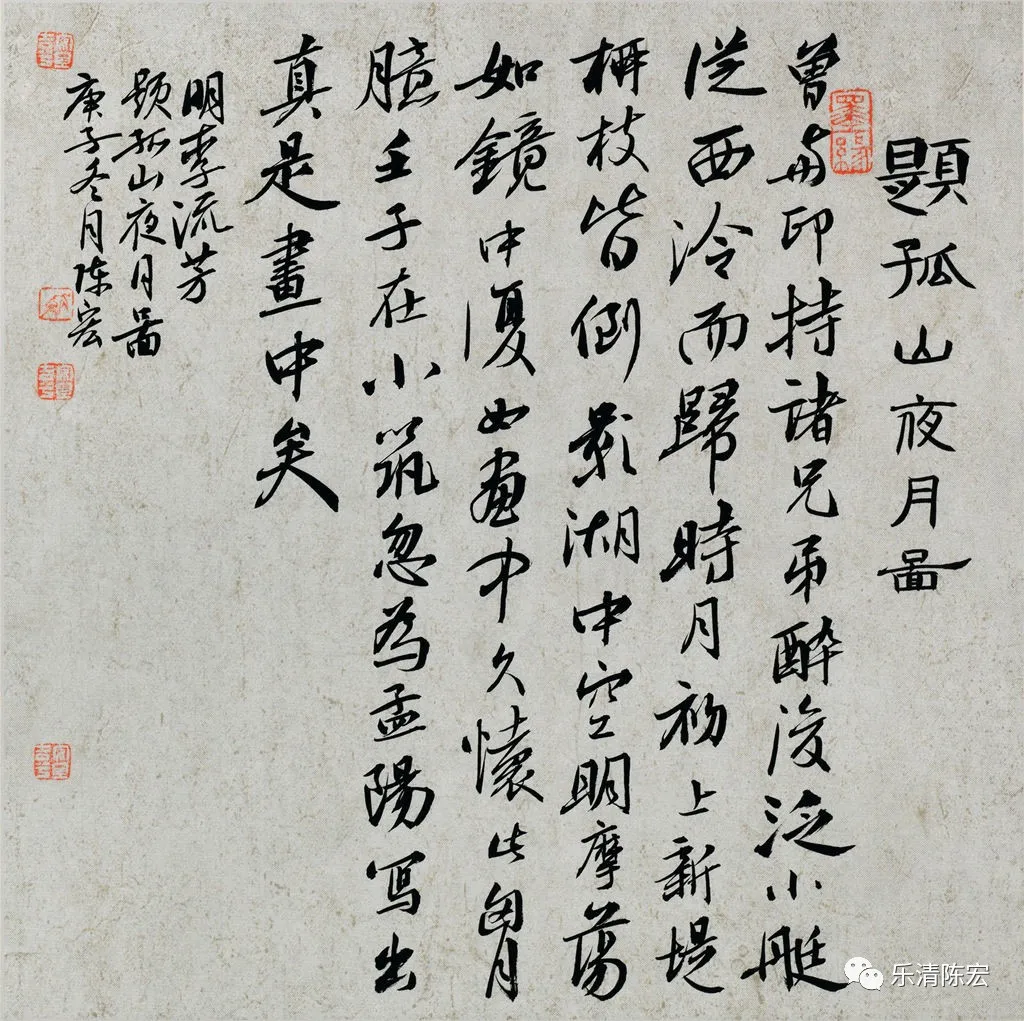 題孤山夜月圖
曾与印持諸兄弟醉後泛小艇
從西泠而歸時月初上新堤
柳枝皆倒影湖中空明摩蕩
如鏡中復如畫中久懷此胷
臆壬子在小筑忽為孟陽写出
真是畫中矣
明李流芳
題孤山夜月圖
庚子冬月陳宏
乐清陈宏